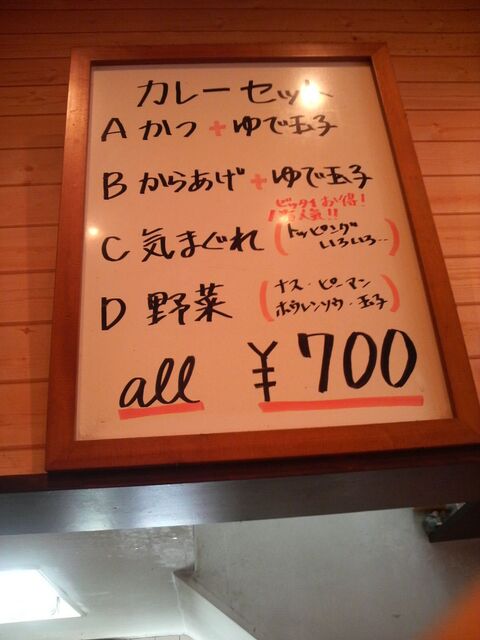 カレーセット
A かつ+ゆで玉子
B からあげ+ゆで玉子
お得!
人気!!
C 気まぐれ (トッピングいろいろ…)
D 野菜 (ナス・ピーマン
ホウレンソウ・玉子)
all ¥700